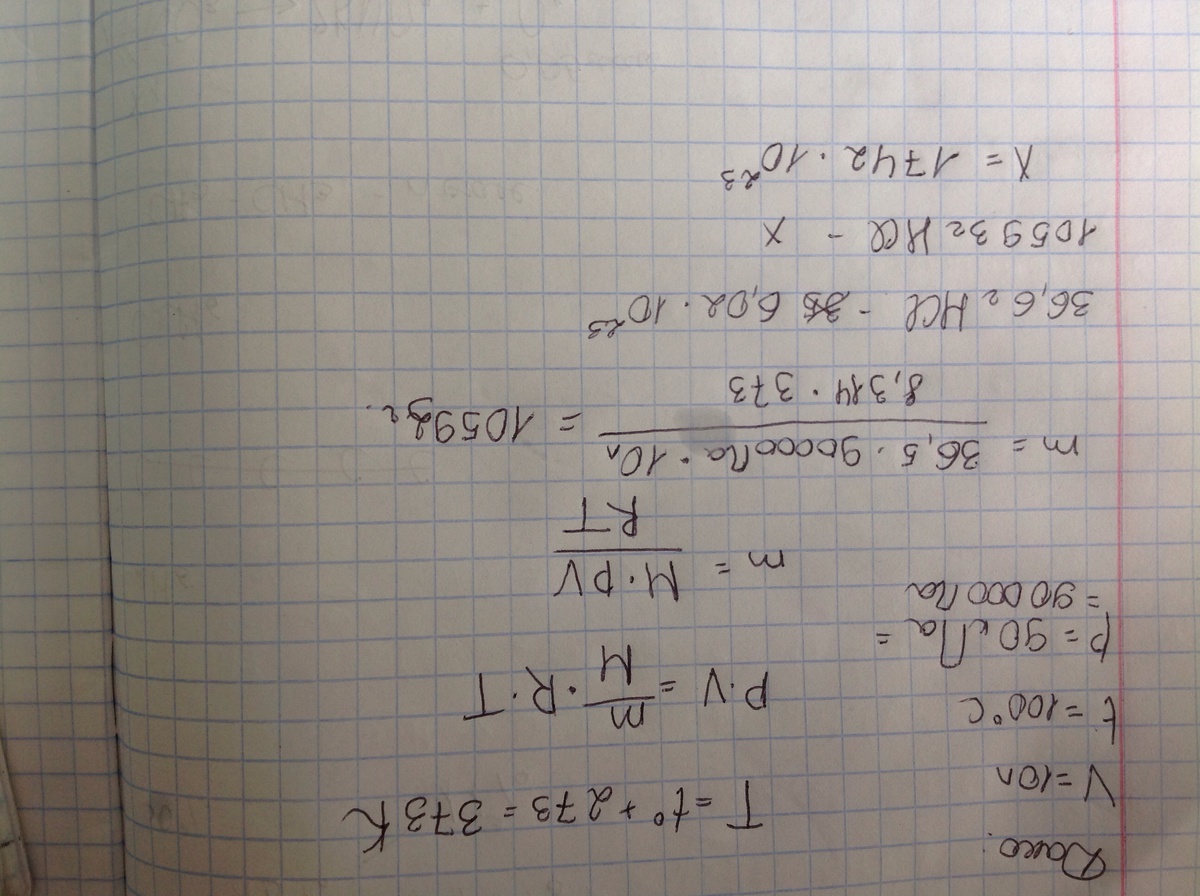 Дано:
V = 10л
t = 100°C
p = 90 кПа =
= 90 000 Па
T = t° + 273 = 373 K
p·V = m/M · R·T
m = M·pV / RT
m = 36,5 · 90000Па · 10л / 8,314 · 373 = 10593г.
36,6г HCl - 6,02 · 10²³
10593г HCl - x
X = 1742 · 10²³